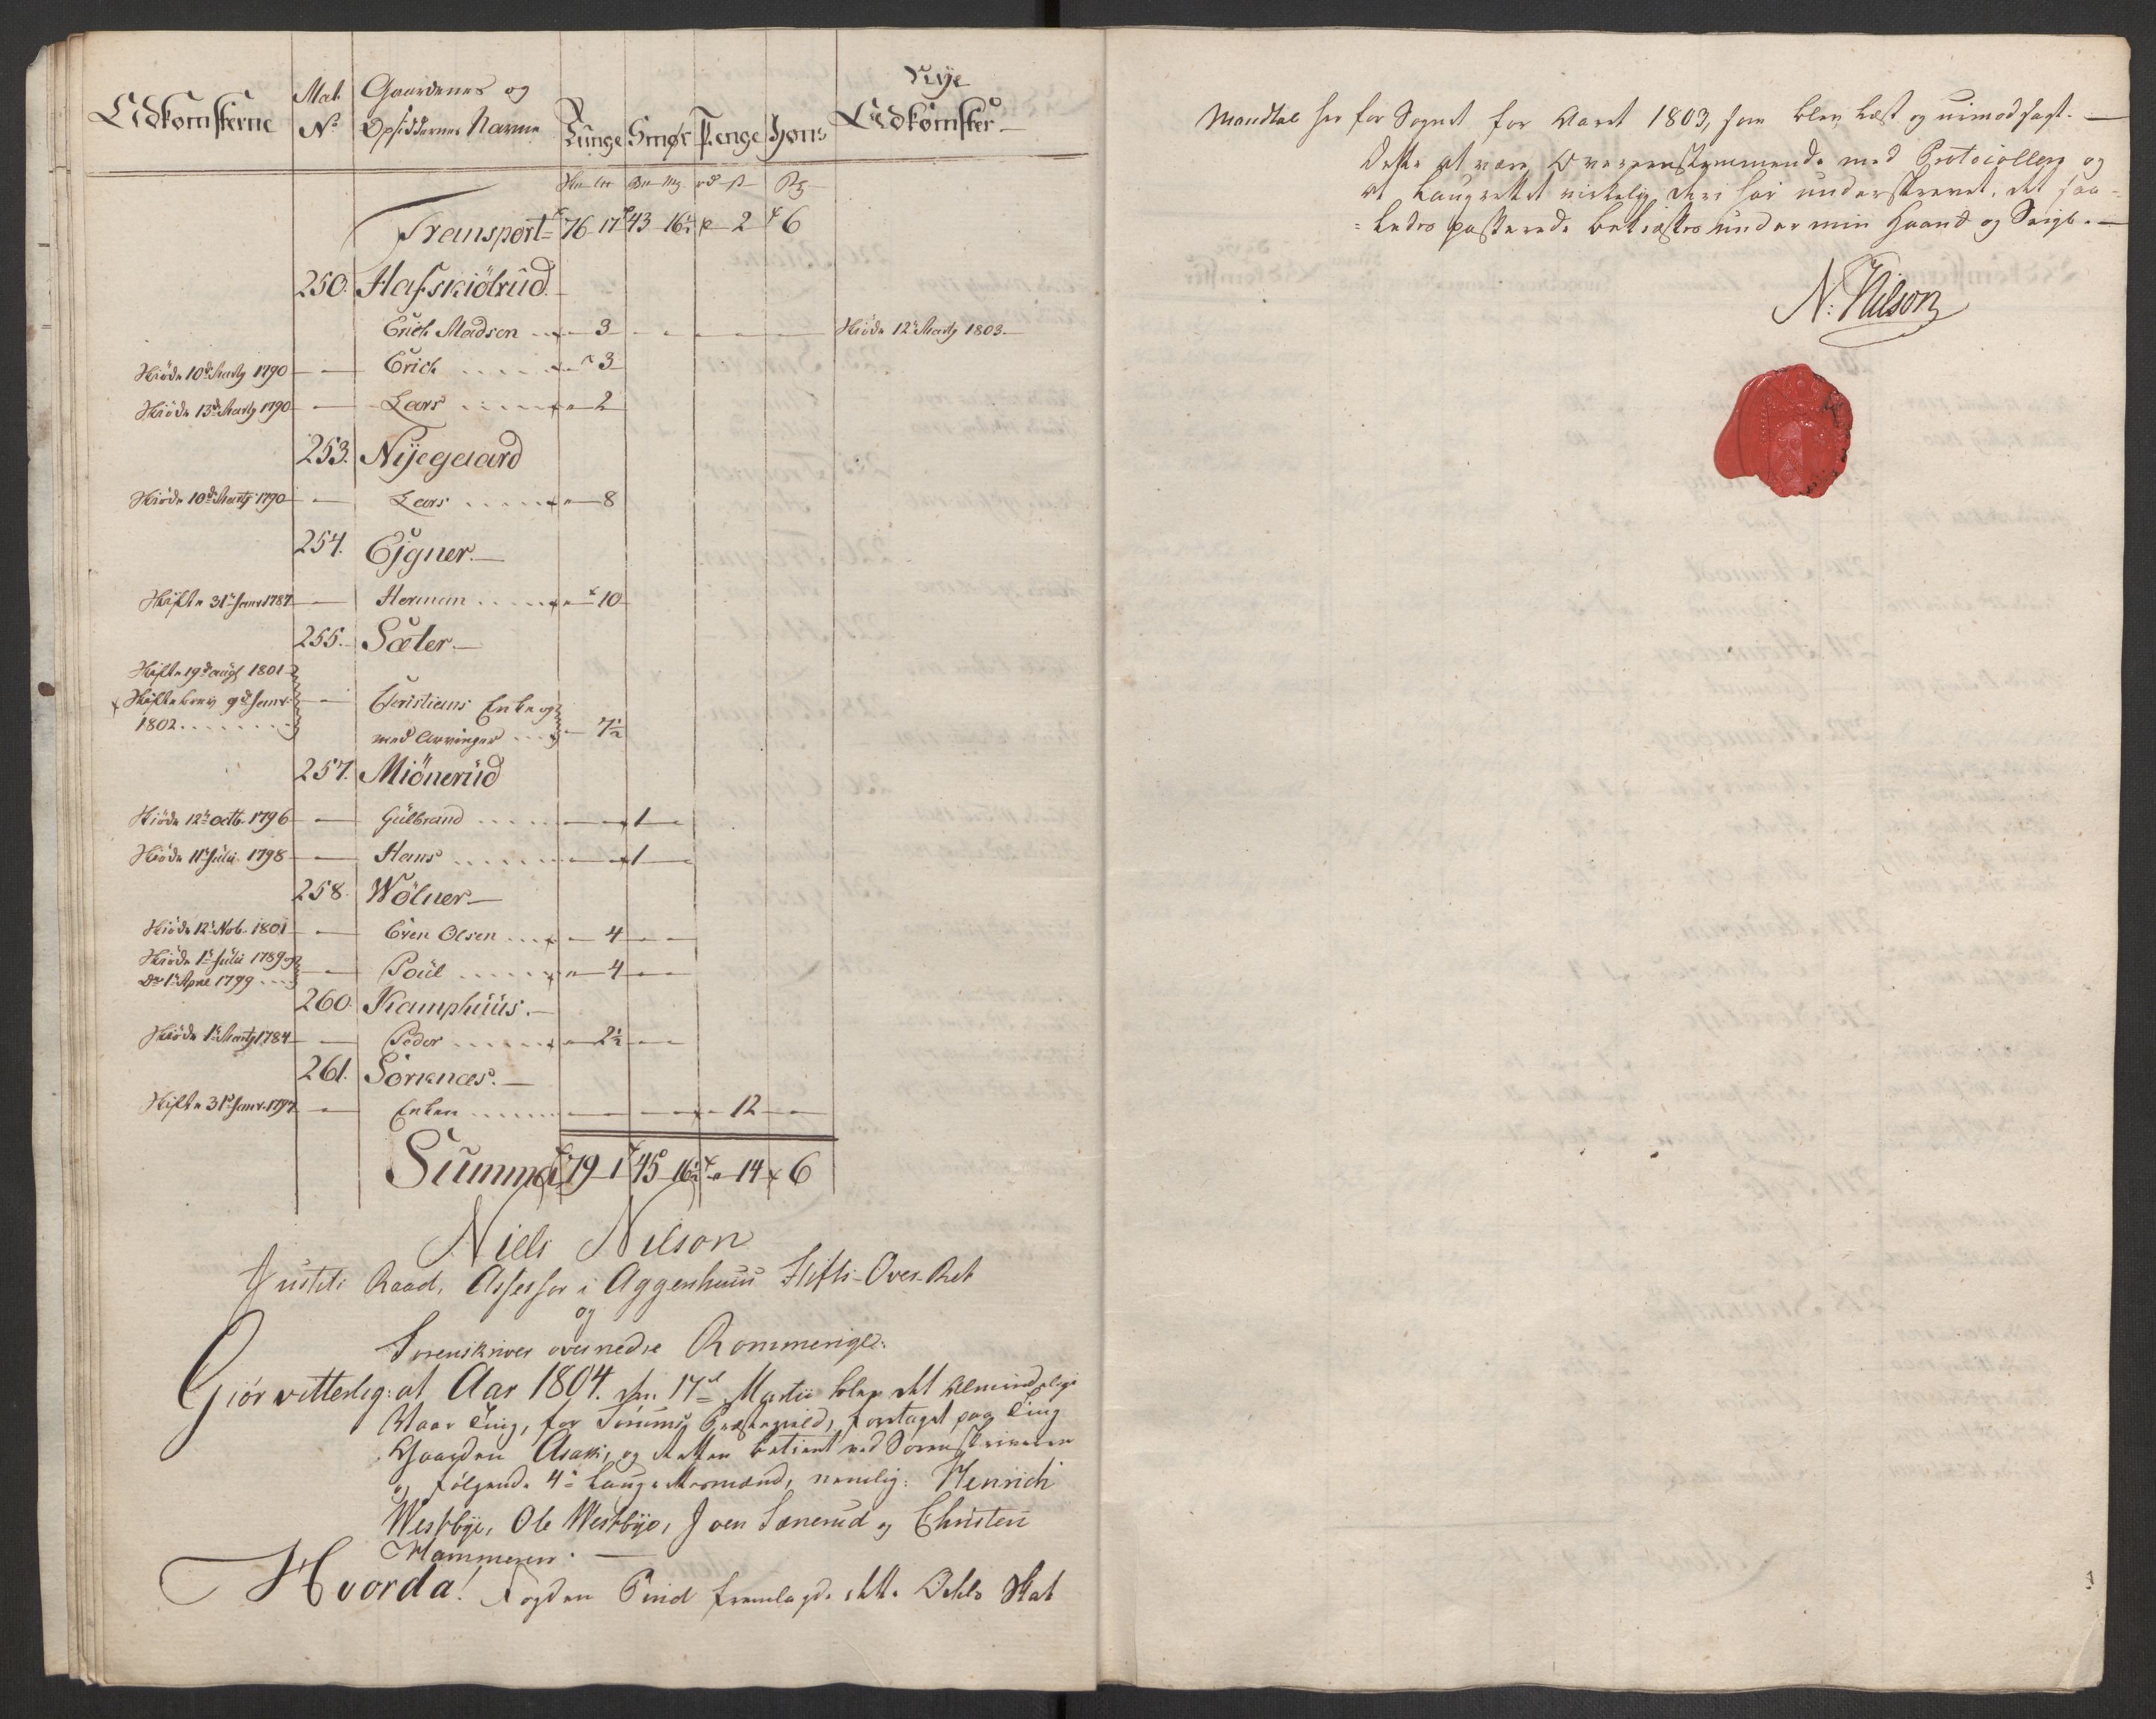 Adkomsterne Mat. No. Gaardenes og Opsiddernes Navne Tunge Smør Penge Korn Nye Adkomster
Transport 76 17 43 16½ 2 6
250. Hafskiölrud
Erich Madsen 3 Skiöde 12te Marty 1803
Skiöde 10de Marty 1790 Erich 3
Skiöde 13de Marty 1790 Lars 2
253. Nijegaard
Skiöde 10de Marty 1790 Lars 8
254. Ejgner
Skifte 31te Janr 1787 Herman 10
255. Sæter
Skifte 19de Augt 1801
Skiftebrev 9de Janr. Christians Enke og
1802 med Arvinger 7½
257. Miönerud
Skiöde 12te octb. 1796 Gulbrand 1
Skiöde 11te Julii 1798 Hans 1
258. Wölner
Skiöde 12te Nob. 1801 Even Olsen 4
Skiöde 1te Julii 1789 og
Do 1te Apr 1799 Poul 4
260. Kamphuus
Skiöde 1te Marty 1784 Peder 2½
261. Sörknæs
Skifte 31te Janr. 1797 Enken 12
Summa 79 1 45 16½ 14 6
Niels Nilson
Justits Raad, Assessor i Aggershuus Stifts-Over-Ret
og
Sorenskriver over nedre Rommerige:
Giör vitterlig: at Aar 1804. den 17de Martii blev det Almindelige
Vaar Ting, for Sörums Præstegield, foretaget paa Ting
Gaarden Asak, og Retten betient ved Sorenskriveren
og fölgende 4re Laugrettesmænd, nemlig: Henrich
Westbye, Ole Westbye, Joen Sanerud og Christen
Hammeren.
Hvorda! Fogden Pind fremlagde dette Odels Skat
Mandtal her for Sognet for Aaret 1803, som blev læst og uimodsagt.
Dette at være Overeensstemmende med Protocollen og
at Laugrettet virkelig deri har underskrevet, det saa-
ledes passerede bekræftes under min Haand og Seigl.
N. Nilson